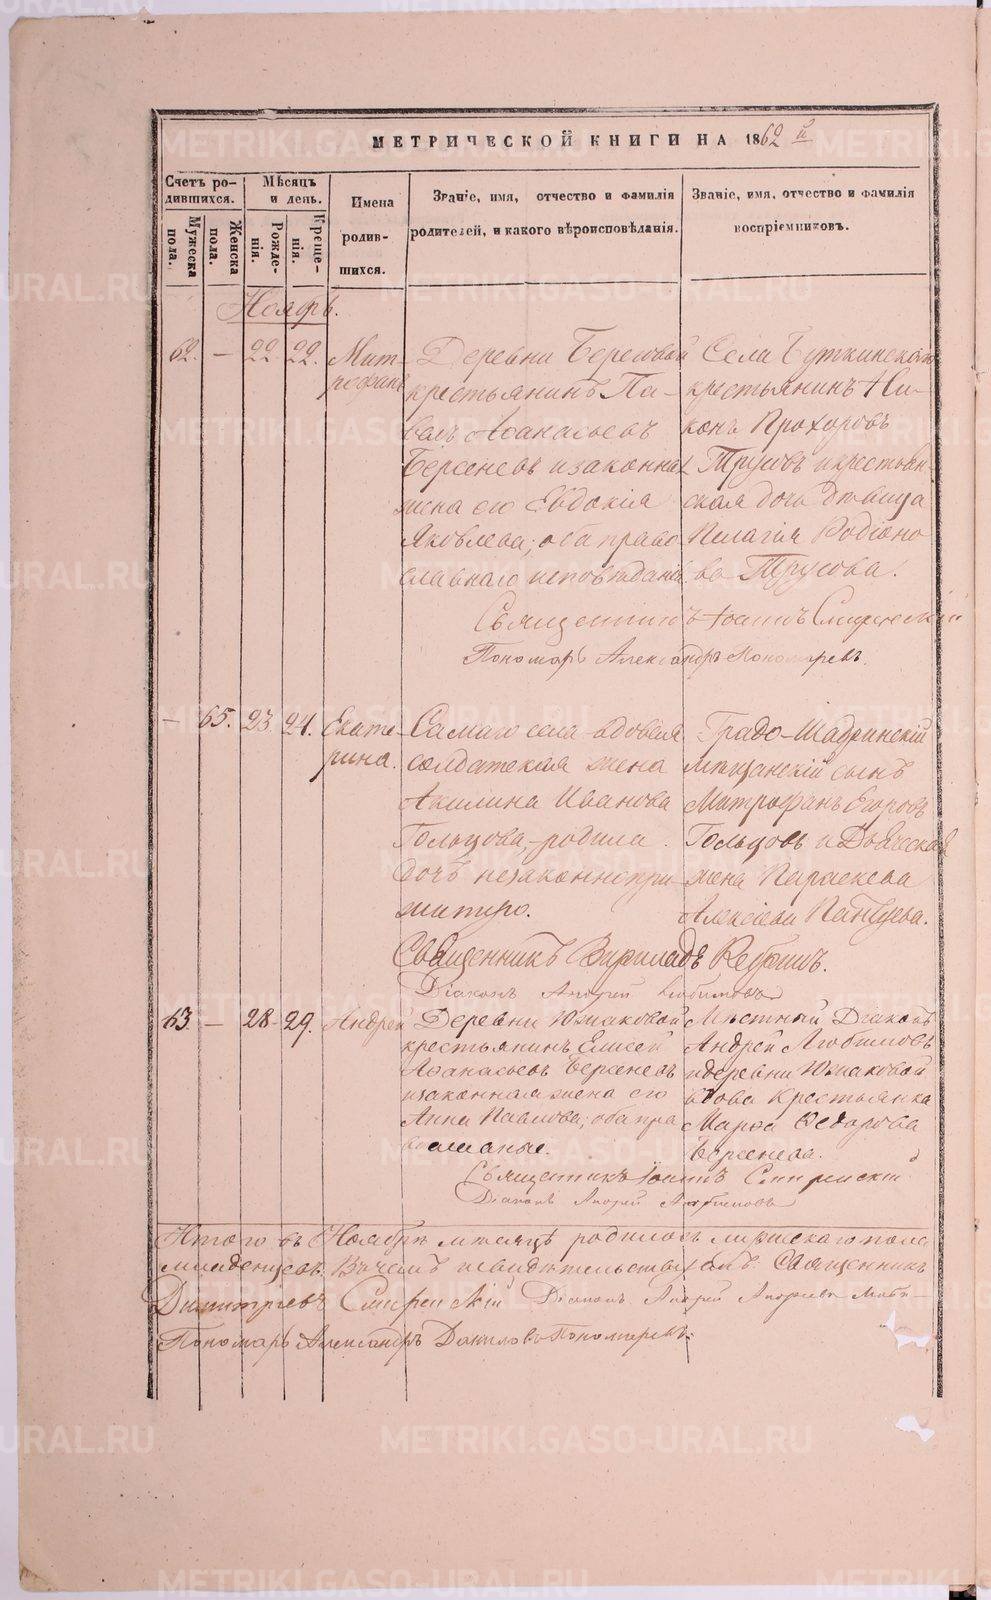 МЕТРИЧЕСКОЙ КНИГИ НА 1862 й
Счетъ ро-
дившихся.
Мѣсяцъ
и день.
Имена
родив-
шихся.
Званіе, имя, отчество и фамилія
родителей, и какого вѣроисповѣданія.
Званіе, имя, отчество и фамилія
воспріемниковъ.
Мужеска
пола.
Женска
пола.
Рожде-
нія.
Креще-
нія.
Ноябрь.
62. — 22. 22. Мит-
рофанъ
Деревни Береговой
крестьянинъ Па-
велъ Аѳанасьевъ
Берсеневъ и законная
жена его Евдокія
Яковлева; оба право
славнаго исповѣданія.
Села Буткинскаго
крестьянинъ Ни-
конъ Прохоровъ
Трусовъ и крестьян-
ская дочь дѣвица
Пелагія Родіоно
ва Трусова.
Священникъ Іоаннъ Смиренскій
Пономарь Александръ Пономаревъ.
— 65. 23. 24. Екате-
рина.
Самаго села вдовая
солдатская жена
Акилина Иванова
Гольцова, родила
дочь незаконнопри-
житую.
Градо-Шадринскій
мѣщанскій сынъ
Митрофанъ Егоровъ
Гольцовъ и Дьяческая
жена Параскева
Алексіева
Священникъ
Діаконъ Андрей Любимовъ
63. — 28. 29. Андрей
Деревни Южаковой
крестьянинъ Елисей
Аѳанасьевъ Берсеневъ
и законная жена его
Анна Павлова; оба пра
вославные.
Мѣстный Діаконъ
Андрей Любимовъ
и деревни Южаковой
вдова крестьянка
Марѳа Ѳедорова
Берсенева.
Священникъ Іоаннъ Смиренскій
Діаконъ Андрей Любимовъ
Итого въ Ноябрѣ мѣсяцѣ родилось мужскаго пола
младенцевъ. Въ чемъ и свидѣтельствуемъ: Священникъ
Димитріевъ Смиренскій Діаконъ Андрей Андреевъ Люби-
Пономарь Александръ Даниловъ Пономаревъ.
METRIKI.GASO-URAL.RU